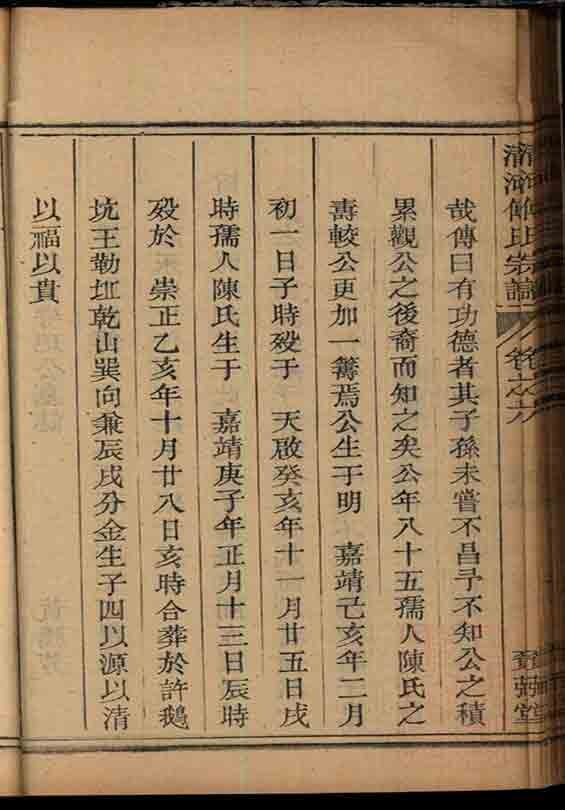 清河傅氏宗譜 卷之六 賚弼堂
哉傳曰有功德者其子孫未嘗不昌予不知公之積
累觀公之後裔而知之矣公年八十五孺人陳氏之
壽較公更加一籌焉公生于明 嘉靖己亥年二月
初一日子時殁于 天啟癸亥年十一月廿五日戌
時孺人陳氏生于 嘉靖庚子年正月十三日辰時
殁於 崇正乙亥年十月廿八日亥時合葬於許鵝
坑王勒坵乾山巽向兼辰戌分金生子四以源以清
以福以貴